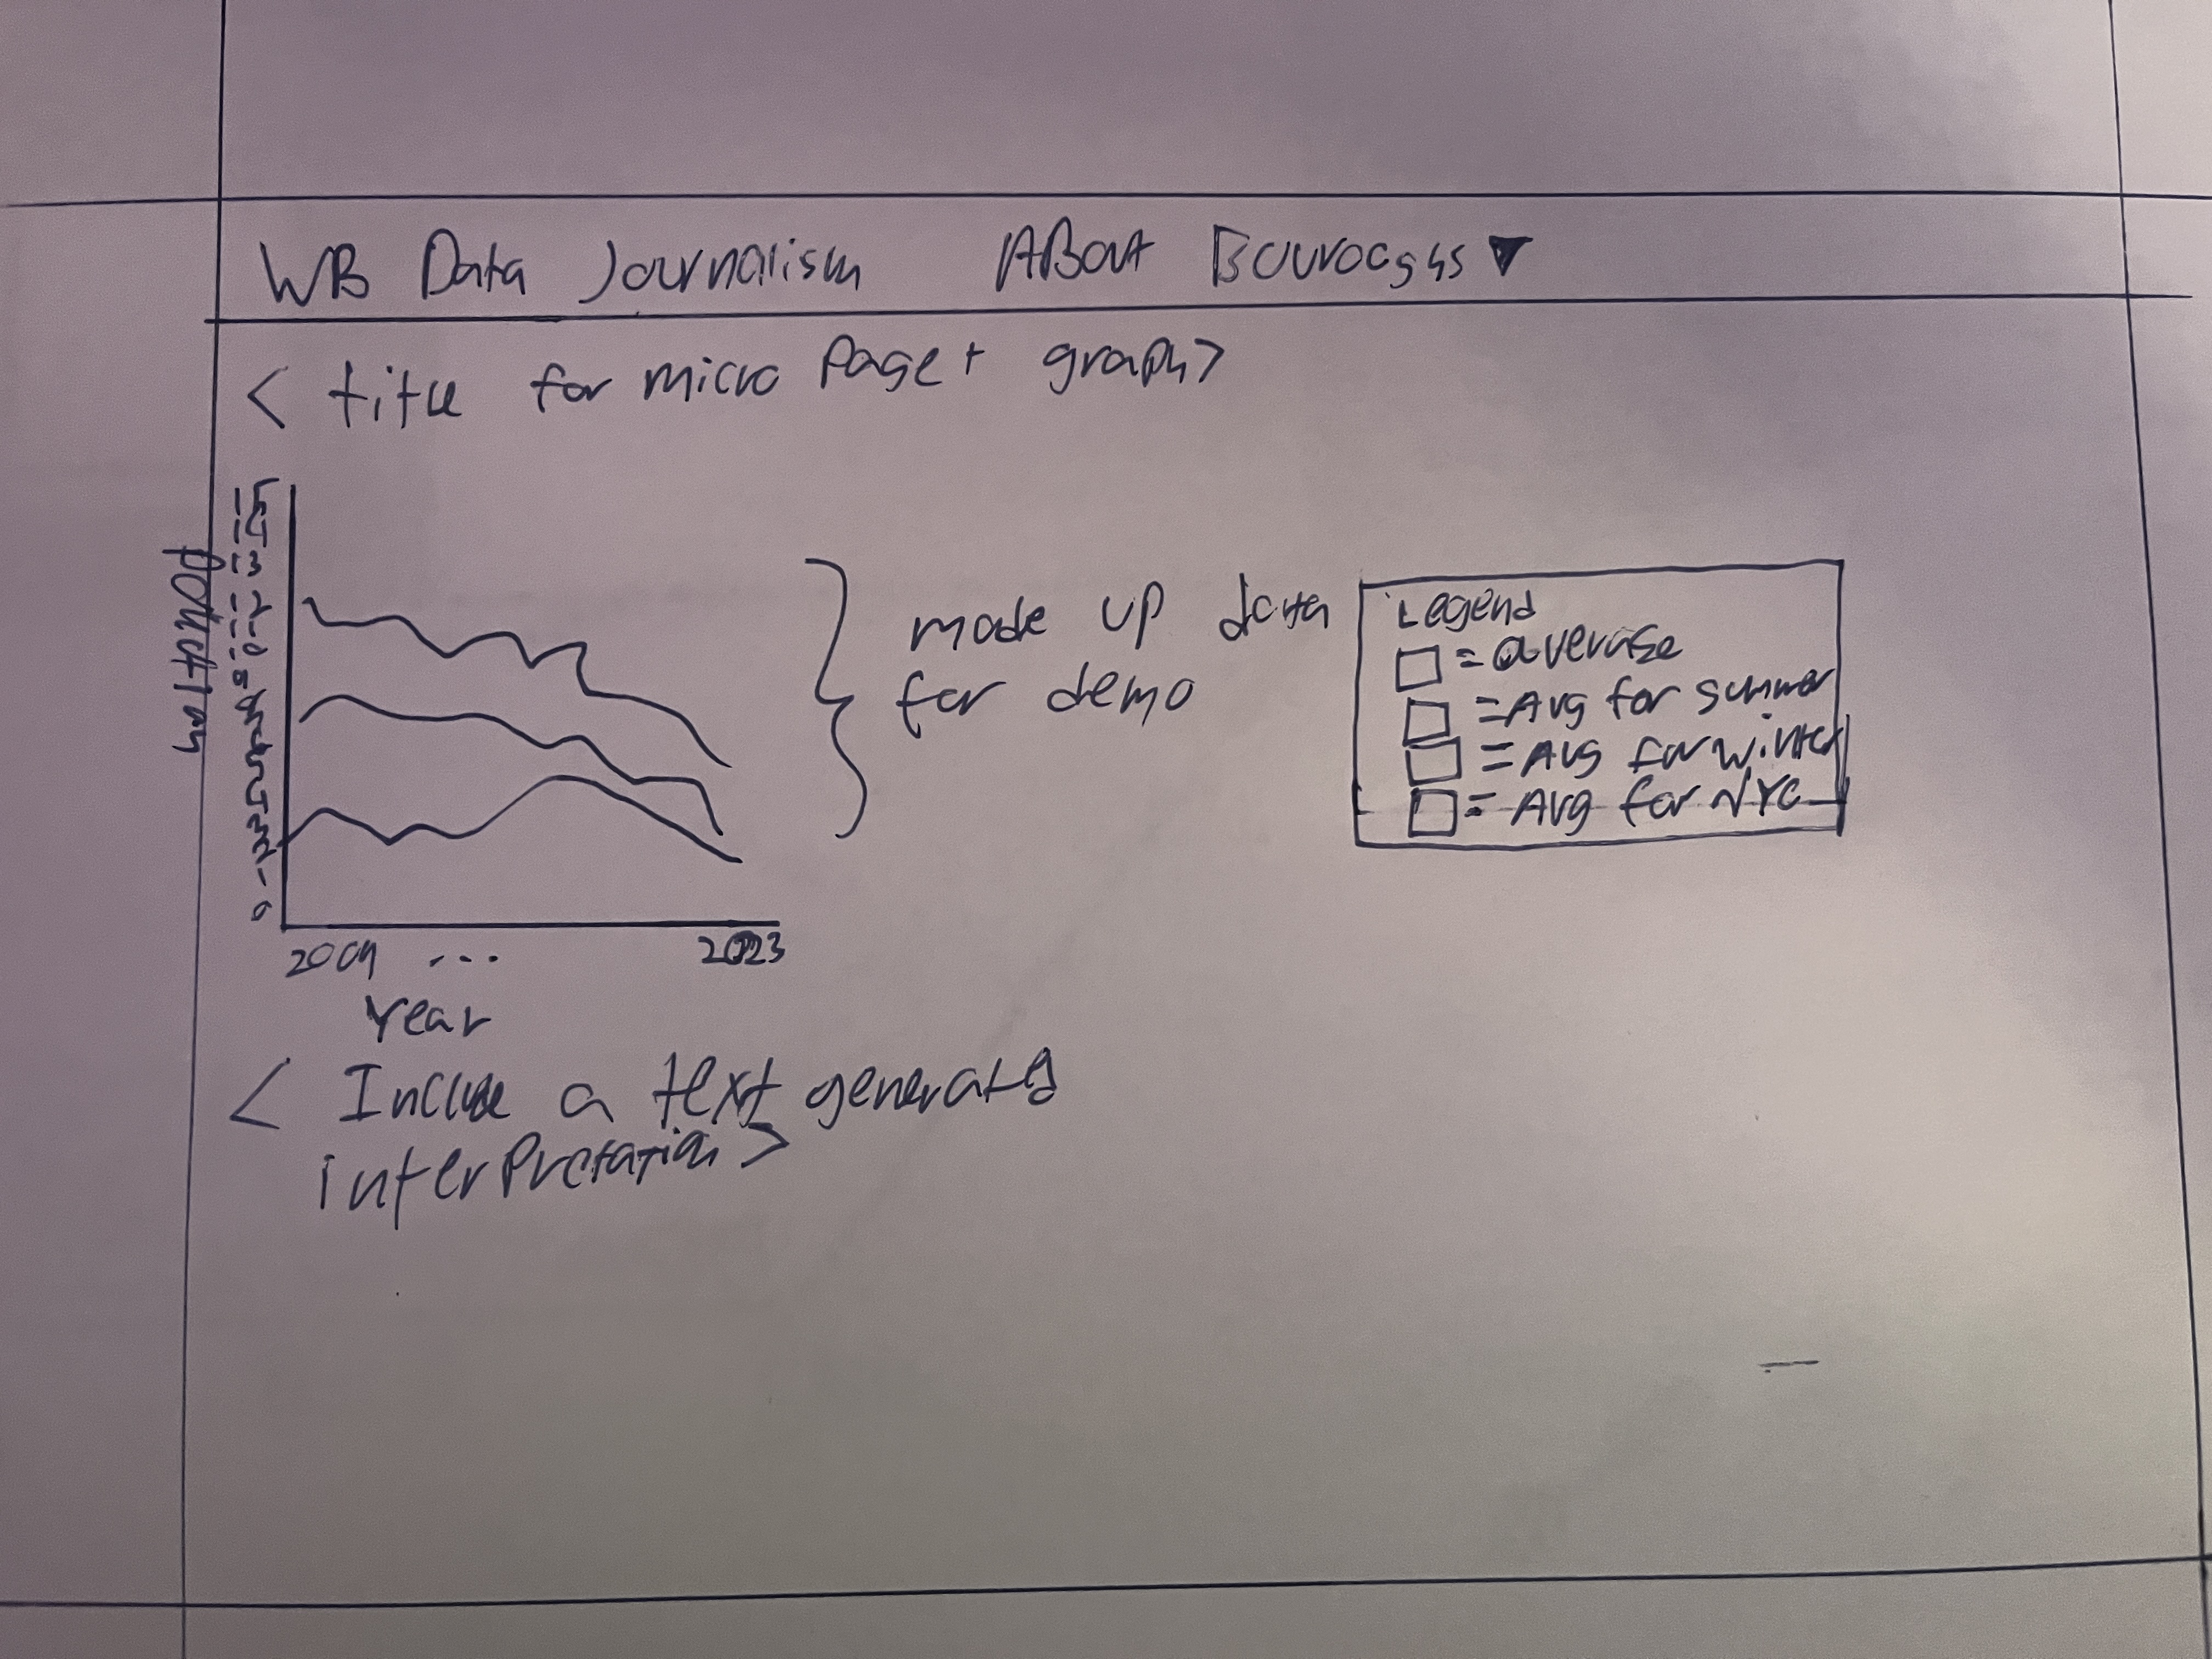 WB Data Journalism About Bouroughs ▼
< title for micro Page + graph>
Pollution
15
14
13
0
2009 ... 2023
Year
made up data
for demo
Legend
= average
= Avg for summer
= Avg for winter
= Avg for NYC
< Include a text generated
interpretation >